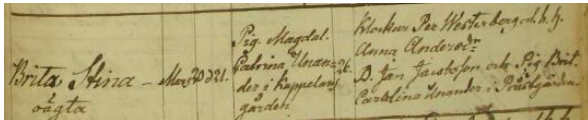 Brita Stina - Mars 20 d 21.
oägta
Pig. Magdal.
Catrina Unan=
der i Kappelans
gården
Klockar Per Westerberg och h. hj.
Anna Anders dr
D. Jan Jacobson och Pig. Brit.
Carolina Unander i Prästgården